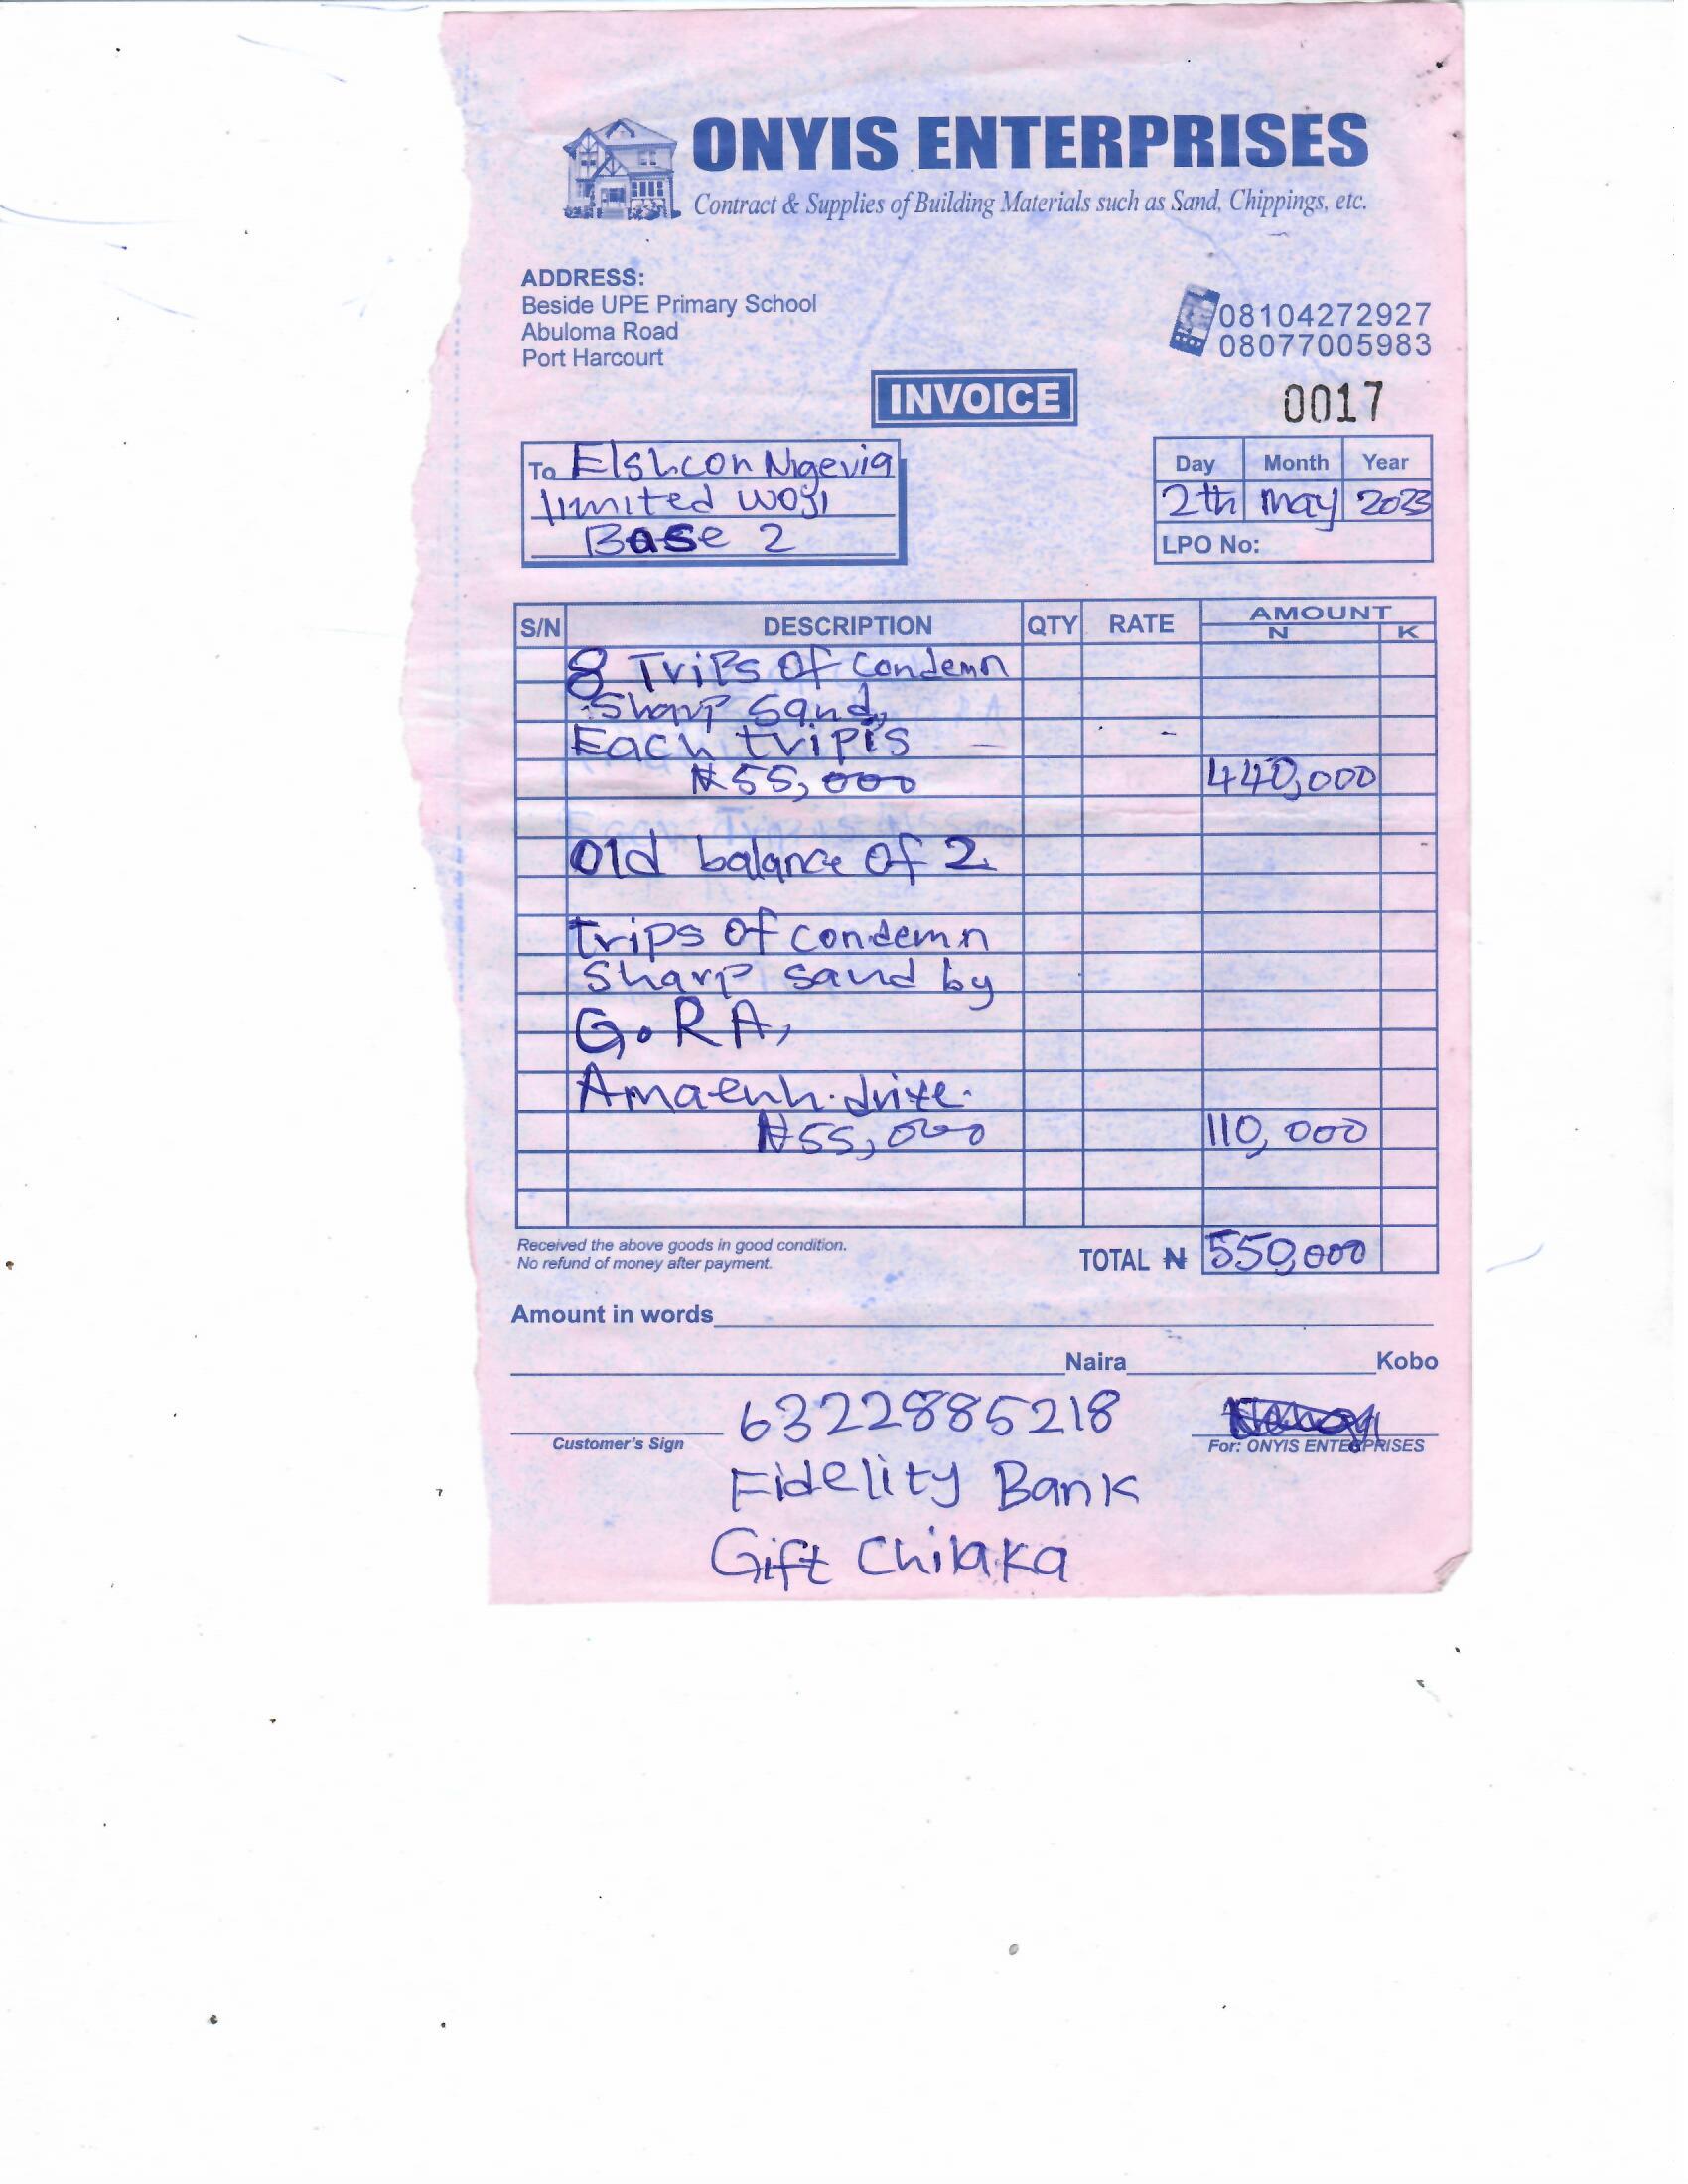 ONYIS ENTERPRISES
Contract & Supplies of Building Materials such as Sand, Chippings, etc.
ADDRESS:
Beside UPE Primary School
Abuloma Road
Port Harcourt
08104272927
08077005983
INVOICE
0017
To Elshcon Nigeria
limited woji
Base 2
Day Month Year
2th May 2023
LPO No:
S/N DESCRIPTION QTY RATE AMOUNT
N K
8 Trips of Condemn
Sharp Sand,
Each trip is
₦55,000 440,000
Old balance of 2
trips of condemn
Sharp sand by
G.RA,
drive.
₦55,000 110,000
Received the above goods in good condition.
No refund of money after payment.
TOTAL ₦ 550,000
Amount in words
Naira Kobo
6322885218
Customer's Sign
For: ONYIS ENTERPRISES
Fidelity Bank
Gift Chilaka